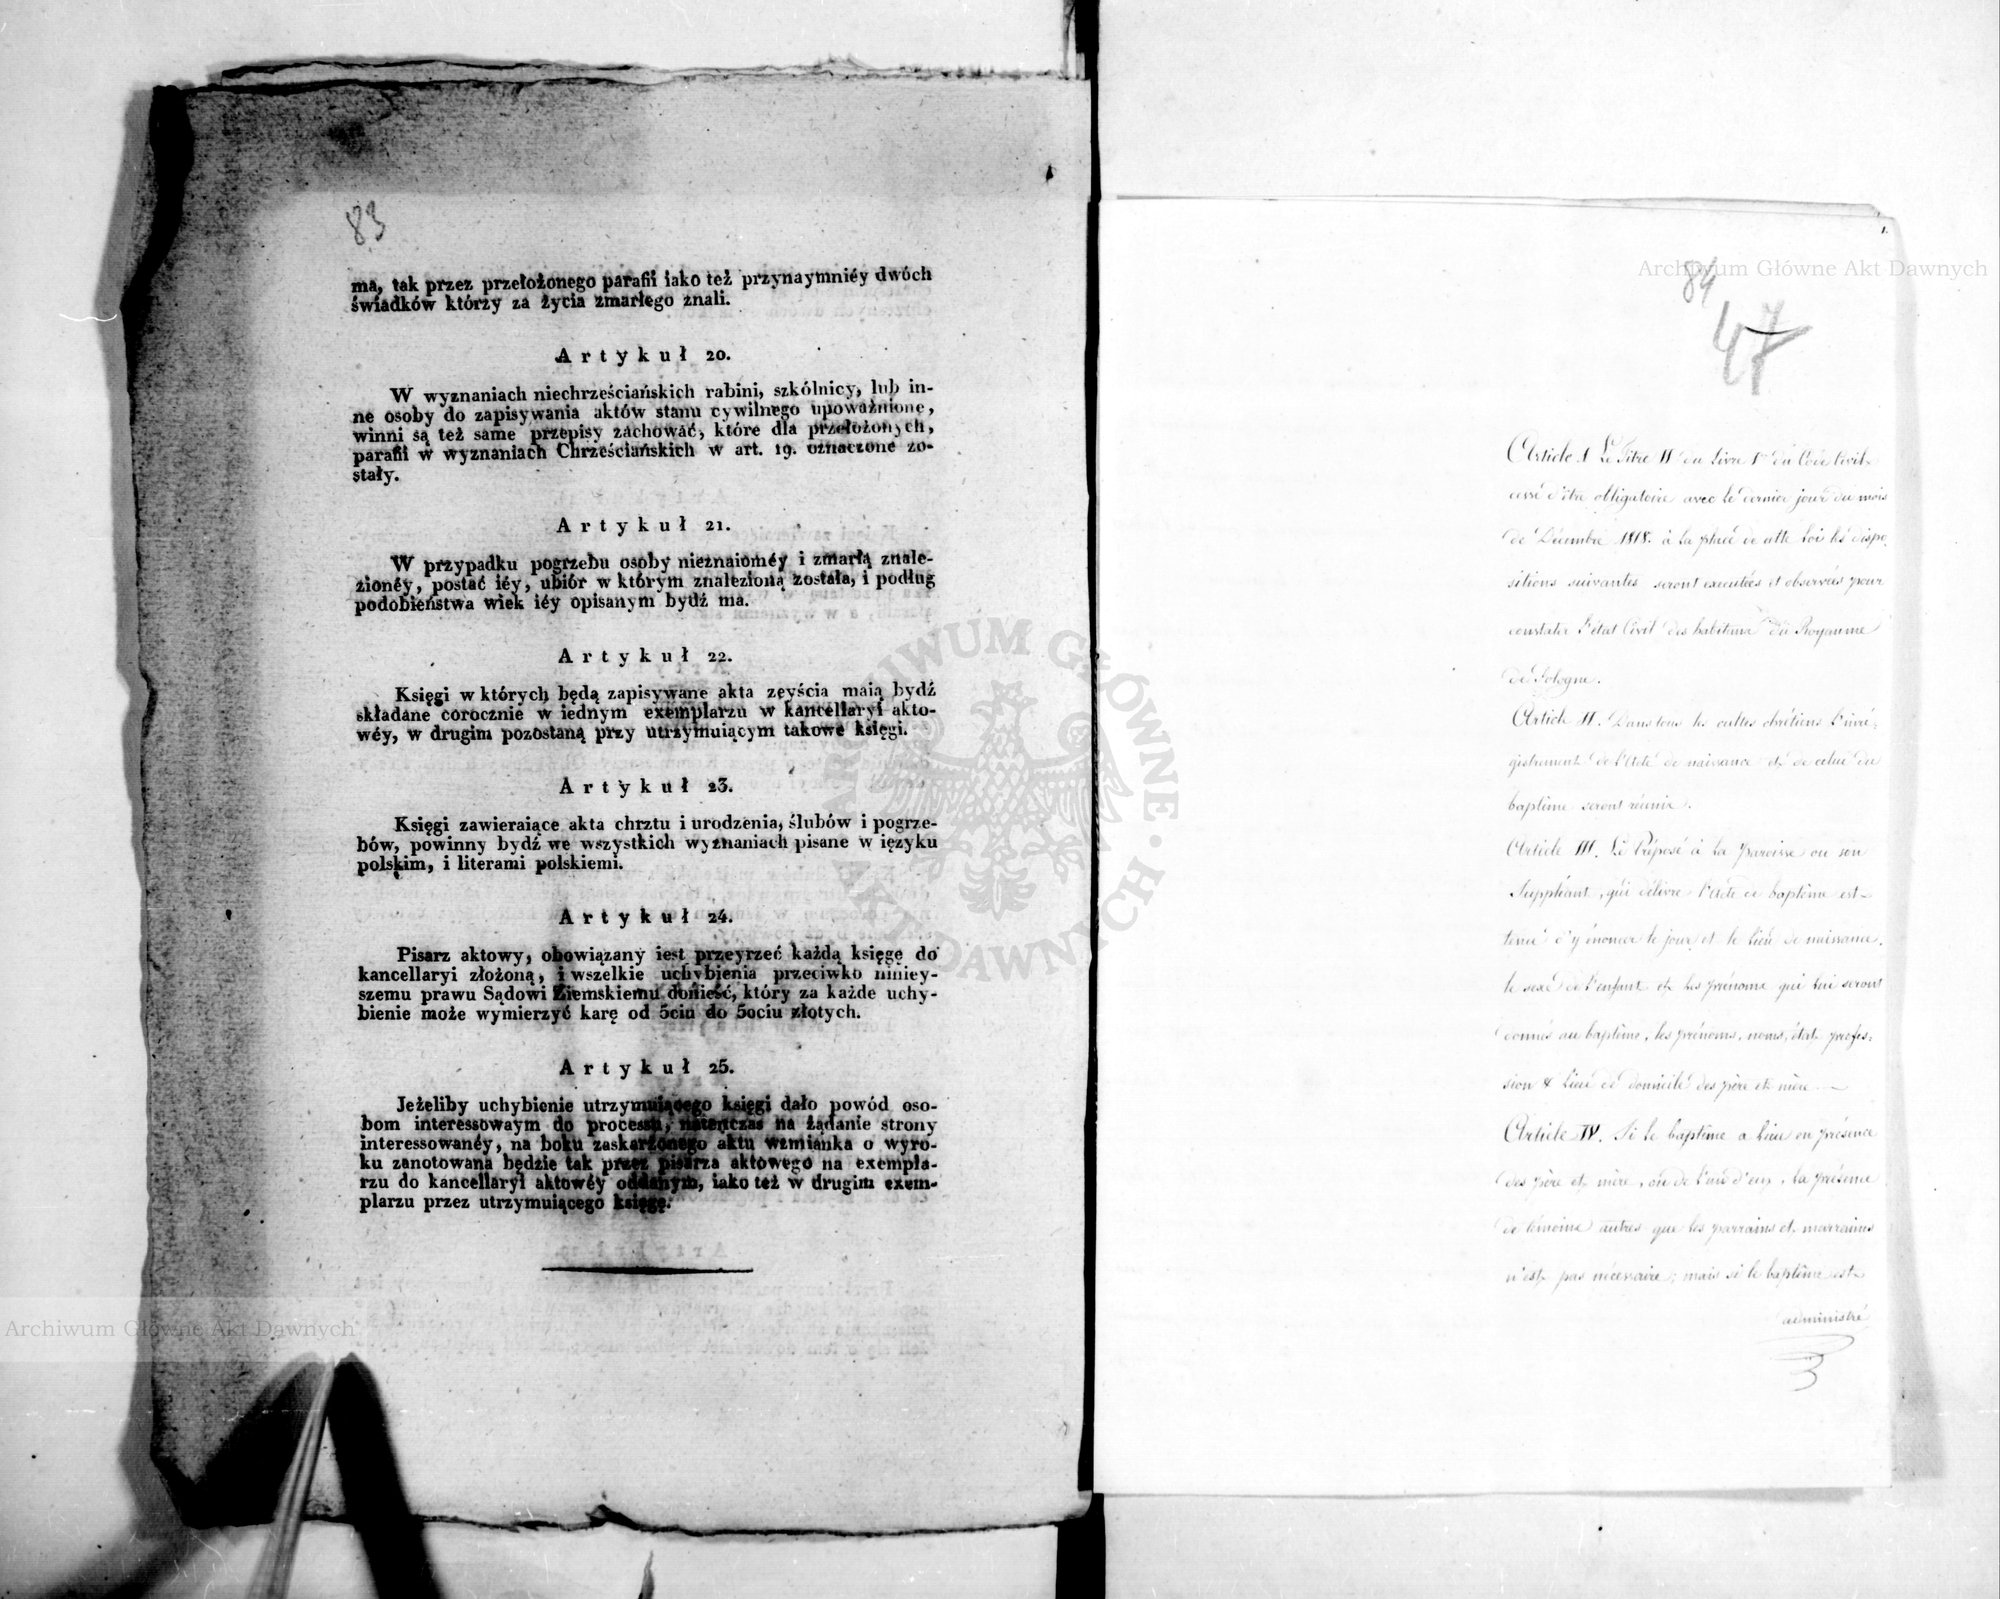 83
ma, tak przez przełożonego parafii iako też przynaymniéy dwóch
świadków którzy za życia zmarłego znali.
Artykuł 20.
W wyznaniach niechrześciańskich rabini, szkólnicy, lub in-
ne osoby do zapisywania aktów stanu cywilnego upoważnione,
winni są też same przepisy zachować, które dla przełożonych,
parafii w wyznaniach Chrześciańskich w art. 19. oznaczone zo-
stały.
Artykuł 21.
W przypadku pogrzebu osoby nieznaioméy i zmarłą znale-
zionéy, postać iéy, ubiór w którym znalezioną została, i podług
podobieństwa wiek iéy opisanym bydź ma.
Artykuł 22.
Księgi w których będą zapisywane akta zeyścia maią bydź
składane corocznie w iednym exemplarzu w kancellaryi akto-
wéy, w drugim pozostaną przy utrzymuiącym takowe księgi.
Artykuł 23.
Księgi zawieraiące akta chrztu i urodzenia, ślubów i pogrze-
bów, powinny bydź we wszystkich wyznaniach pisane w ięzyku
polskim, i literami polskiemi.
Artykuł 24.
Pisarz aktowy, obowiązany iest przeyrzeć każdą księgę do
kancellaryi złożoną, i wszelkie uchybienia przeciwko niniey-
szemu prawu Sądowi Ziemskiemu donieść, który za każde uchy-
bienie może wymierzyć karę od 5ciu do 50ciu złotych.
Artykuł 25.
Jeżeliby uchybienie utrzymuiącego księgi dało powód oso-
bom interessowaym do processu, natenczas na żądanie strony
interessowanéy, na boku zaskarżonego aktu wzmianka o wyro-
ku zanotowana będzie tak przez pisarza aktowego na exempla-
rzu do kancellaryi aktowéy oddanym, iako też w drugim exem-
plarzu przez utrzymuiącego księgę.
1.
84
47
Article I Le Titre II du Livre 1er du Code Civil
cesse d'être obligatoire avec le dernier jour du mois
de Décembre 1818. à la place de cette loi les dispo-
sitions suivantes seront executées et observées pour
constater l'état Civil des habitans du Royaume
de Pologne.
Article II. Dans tous les cultes chrétiens l'inré-
gistrement de l'Acte de naissance et de celui du
baptême seront réunis.
Article III. Le Préposé à la paroisse ou son
Suppléant, qui délivre l'Acte de baptême est
tenu d'y énoncer le jour et le lieu de naissance,
le sexe de l'enfant et les prénoms qui lui seront
donnés au baptême, les prénoms, noms, état, profes-
sion & lieu de domicile des père et mère —
Article IV. Si le baptême a lieu en présence
des père et mère, ou de l'un d'eux, la présence
de témoins autres que les parrains et marraines
n'est pas nécessaire; mais si le baptême est
administré
Archiwum Główne Akt Dawnych
ARCHIWUM GŁÓWNE AKT DAWNYCH
Archiwum Główne Akt Dawnych